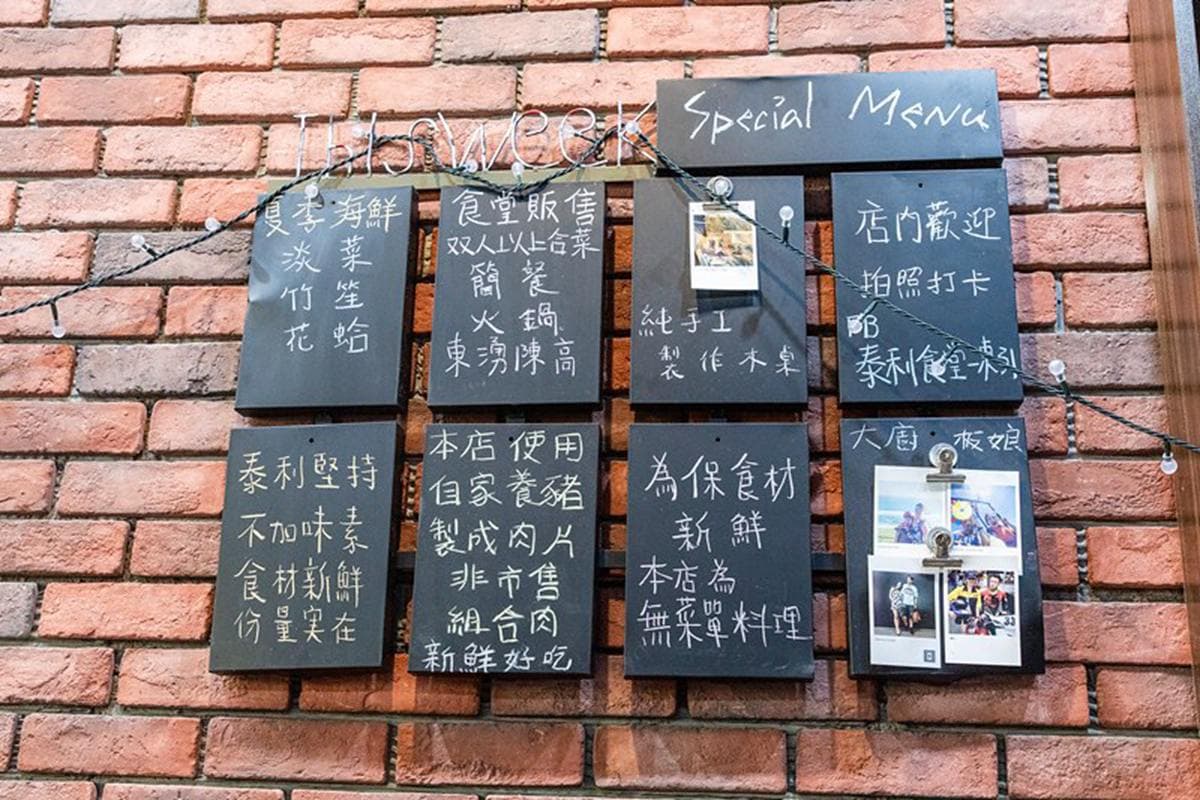 This Week
Special Menu
夏季海鮮
淡菜
竹笙
花蛤
食堂販售
双人以上合菜
簡餐
火鍋
東湧陳高
純手工
製作木桌
店內歡迎
拍照打卡
耶
泰利食堂
泰利堅持
不加味素
食材新鮮
份量実在
本店使用
自家養豬
製成肉片
非市售
組合肉
新鮮好吃
為保食材
新鮮
本店為
無菜單料理
大廚 板娘